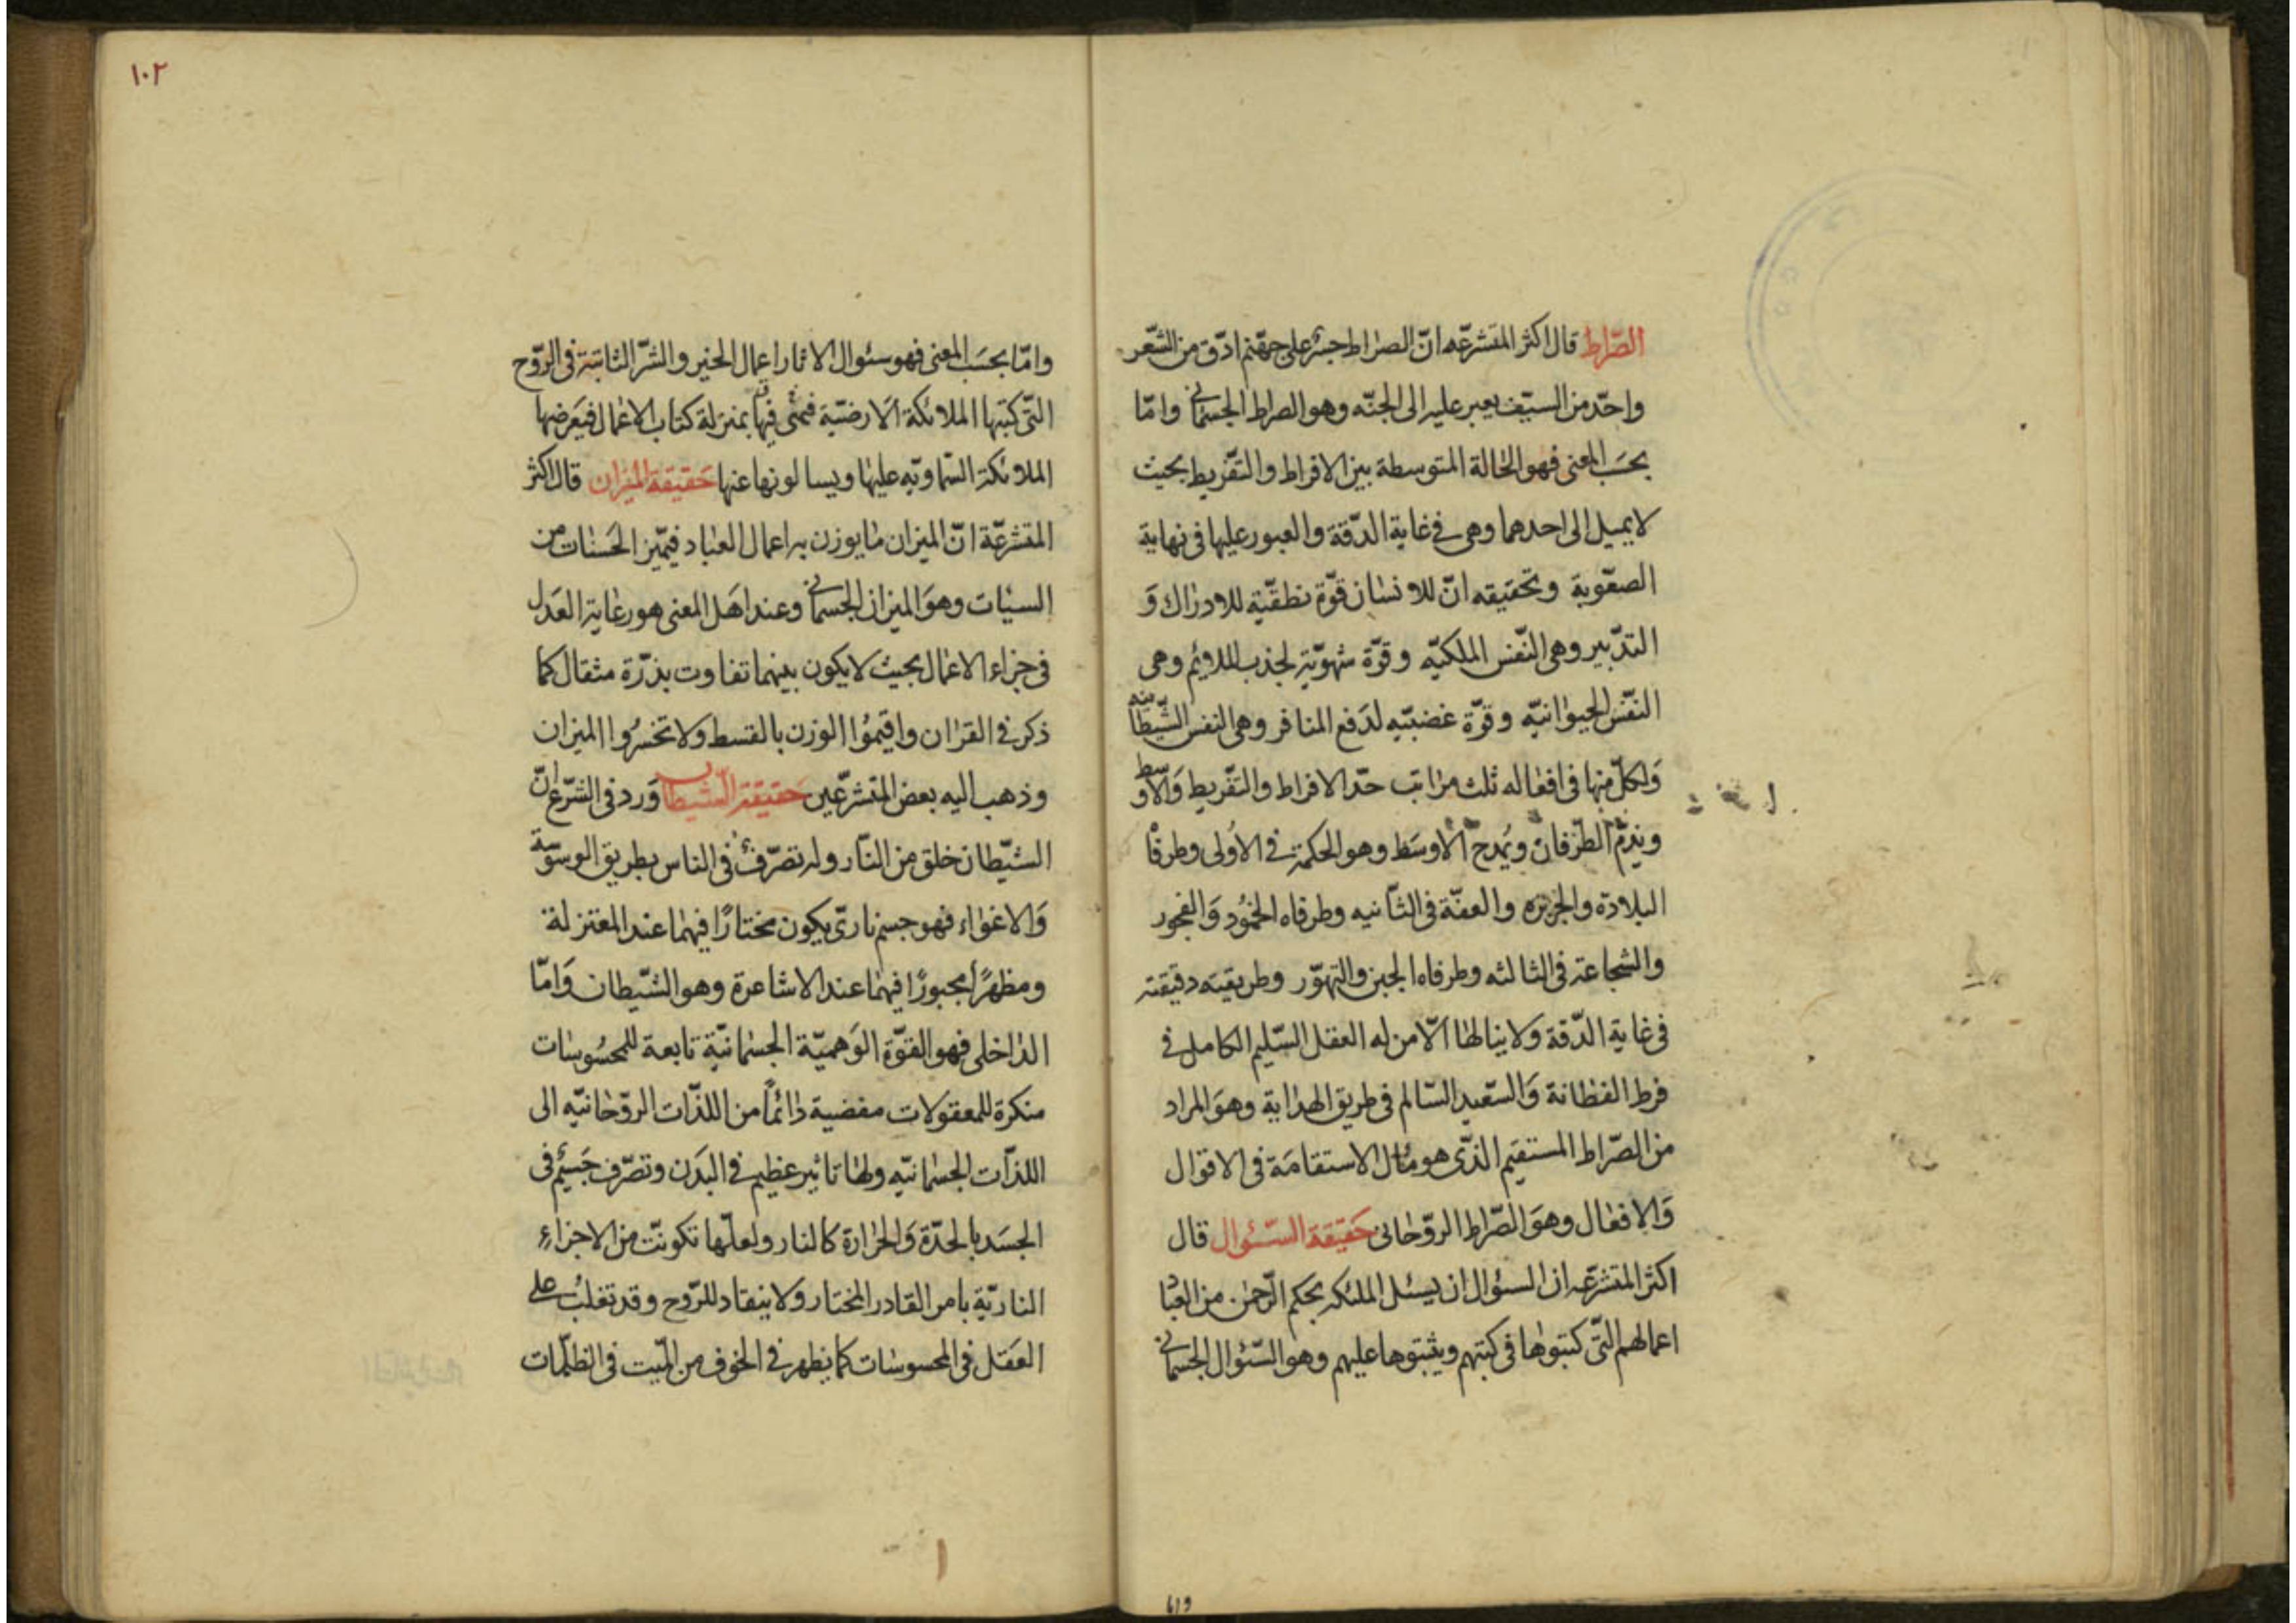 الصّراط قال اكثر المتشرعّه انّ الصراط جسرٌ على جهنّم ادّق من الشّعر
واحدّ من السيّف يعبر عليه الى الجنّه وهو الصراط الجسمانى وامّا
بحسَب المعنى فهو الحالة المتوسطة بين الافراط والتفّريط بحيث
لا يميل الى احدهما وهى فى غاية الدّقة والعبور عليها فى نهاية
الصعّوبة وتحقيقه انّ للانسان قوّة نطقيّة للادراك وَ
التدّبير وهى النّفس الملكيّه وقوّة شهويّة لجذب الملايم وهى
النفّس الحيوانيّه وقوّة غضبيّه لدَفع المنافر وهى النفس الشّيطانيه
وَلكلّ منها فى افعاله ثلث مراتب حدّ الافراط والتفّريط وَالاوسط
ويذمّ الطّرفان ويُمدح الاوسَط وهو الحكمة فى الاُولى وطرفاه
البلادة والجربزه والعفّة فى الثّانيه وطرفاه الخمُود وَالفجور
والشجاعة فى الثالثه وطرفاه الجبن والتهوّر وطريقيته دقيقته
فى غاية الدّقة ولا ينالها الّا من له العقل السّليم الكامل فى
فرط الفطانة وَالسّعيد السّالم فى طريق الهداية وهوَ المراد
من الصّراط المستقيم الذّى هو مآل الاستقامَة فى الاقوال
وَالافعال وهوَ الصّراط الروّحانى حَقيقة السّئوال قال
اكثر المتشرعّه ان السئوال ان يسئل الملئكه بحكم الرّحمٰن من العبّاد
اعمالهم التّى كتبوها فى كتبهم ويثبتوها عليهم وهو السّئوال الجسمانى
619
١٠٢
وامّا بحسَب المعنى فهو سئوال الاثار اعمال الخير والشرّ الثابتة فى الروّح
التّى كتبتها الملائكة الارضيّة فهى فيها بمنزلة كتاب الاعمال فيَعرضها
الملائكة السّماويّه عليها ويسالونها عنها حَقيقة الميزان قال اكثر
المتشرعّة انّ الميزان ما يوزن به اعمال العباد فيميّز الحَسنات من
السيئات وهوَ الميزان الجسمانى وعند اهَل المعنى هو رعاية العَدل
فى جزاء الاعمال بحيث لا يكون بينهما تفاوت بذرّة مثقال كما
ذكر فى القران واقيمُوا الوزن بالقسط ولا تخسرُوا الميزان
وذهب اليه بعض المتشرعّين حَقيقة الشّيطان وَرد فى الشّرع انّ
الشّيطان خلق من النّار وله تصرّفٌ فى الناس بطريق الوسوسَة
وَالاغواء فهو جسم نارىّ يكون مختارًا فيهما عند المعتزلة
ومظهرًا مجبورًا فيهما عند الاشاعرة وهو الشّيطان وَامّا
الداخلى فهو القوّة الوَهميّة الجسمانيّة تابعة للمحسُوسات
منكرة للمعقولات مفضية دائماً من اللذّات الروّحانيّه الى
اللذّات الجسمانيّه ولها تاثير عظيم فى البدَن وتصرّف جَسيم فى
الجسَد بالحدّة وَالحرارة كالنار ولعلّها تكونّت من الاجزاءِ
الناريّة بامر القادر المختار ولا ينقاد للروّح وقد تغلبُ على
العَقل فى المحسوسات كما يظهر فى الخوف من الميّت فى الظلمّات